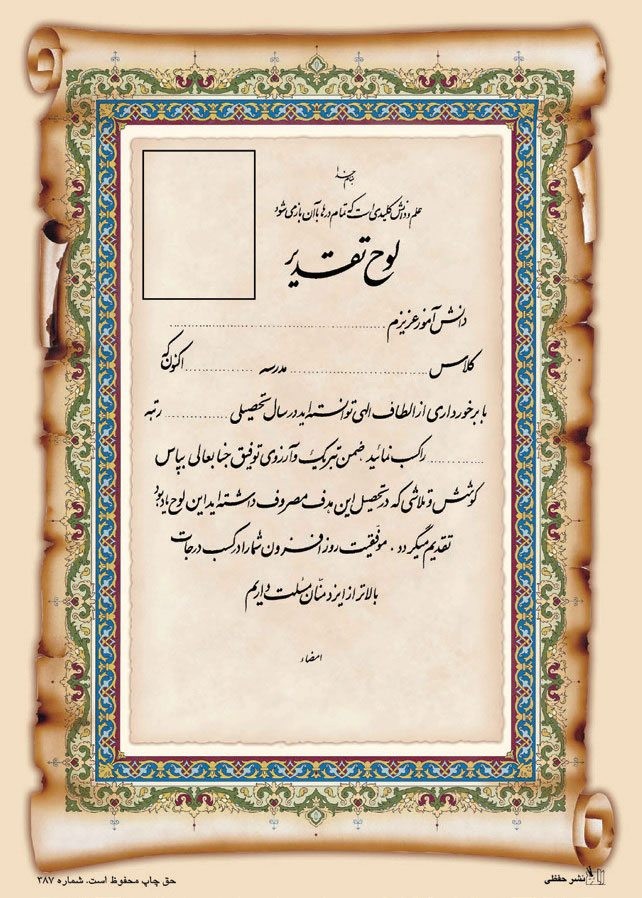 بنام خدا
علم و دانش کلیدی است که تمام درها با آن باز می شود
لوح تقدیر
دانش آموز عزیزم ........................................
کلاس ........................ مدرسه ................ اکنون که
با برخورداری از الطاف الهی توانسته اید در سال تحصیلی ............... رتبه
............ را کسب نمائید ضمن تبریک و آرزوی توفیق جنابعالی بپاس
کوشش و تلاشی که در تحصیل این هدف مصروف داشته اید این لوح یادبود
تقدیم میگردد . موفقیت روز افزون شما را در کسب درجات
بالاتر از ایزد منّان مسئلت داریم
امضاء
نشر حفظی
حق چاپ محفوظ است. شماره ۳۸۷